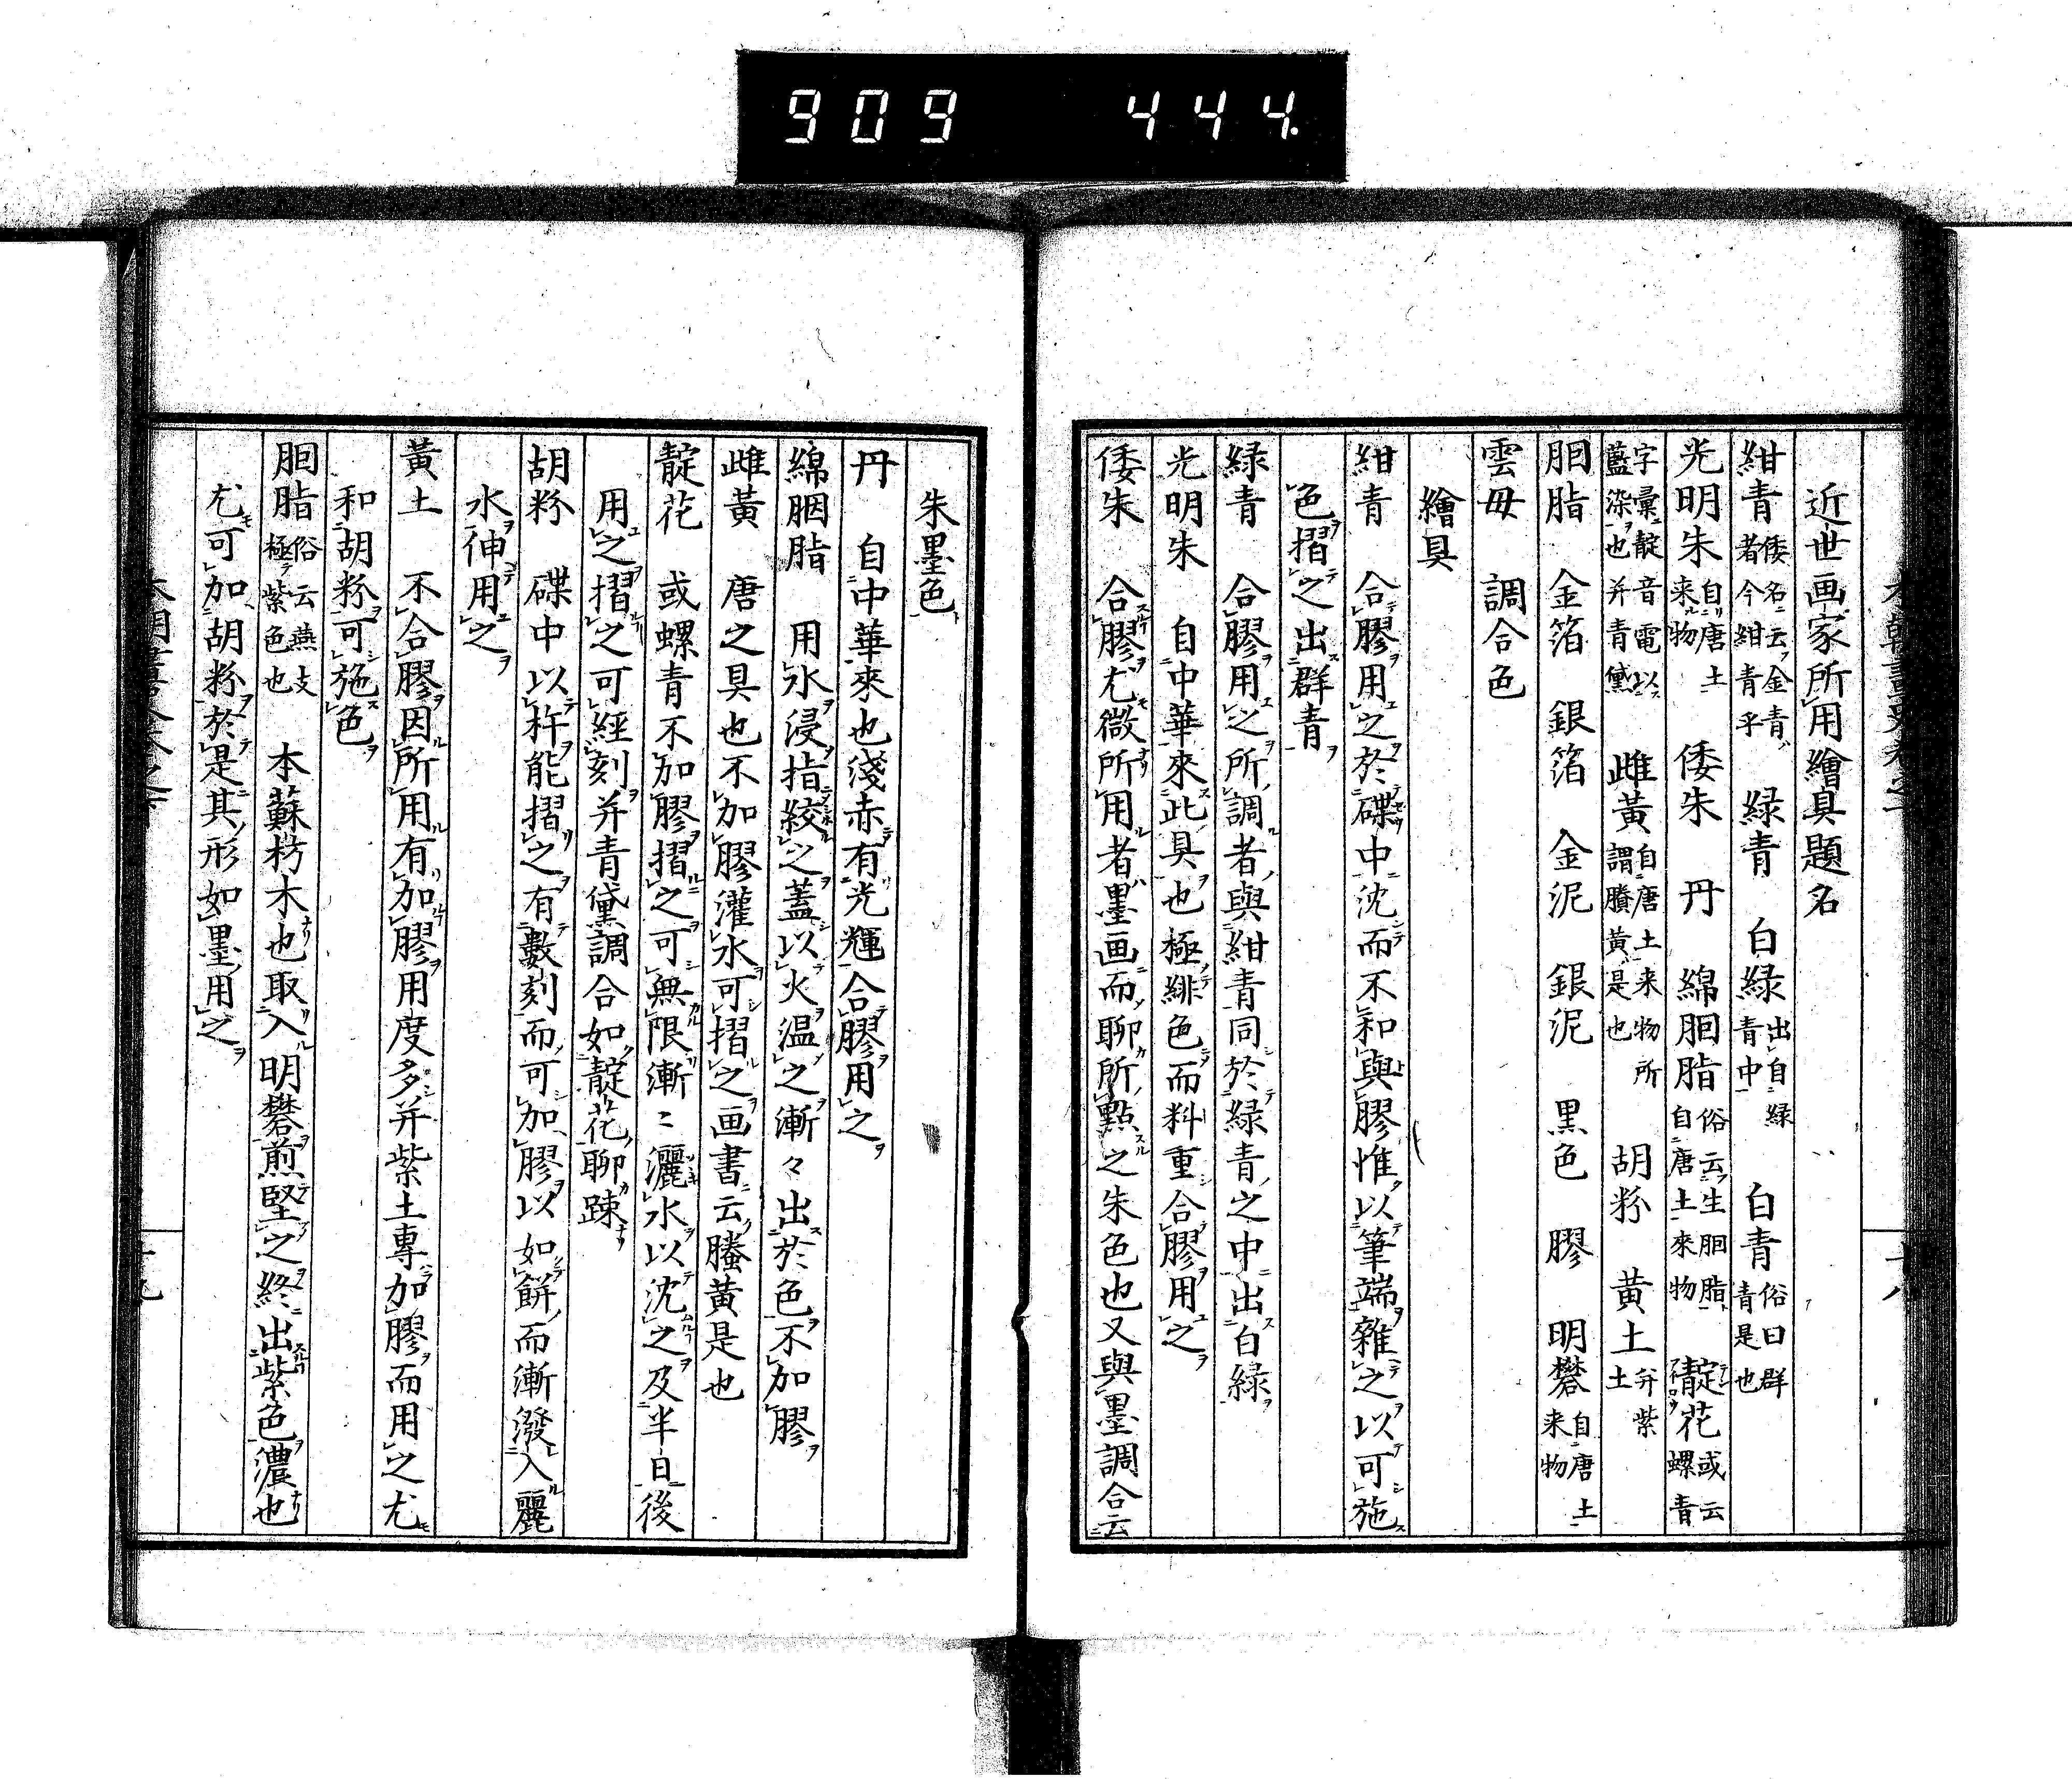 909 444.
近世画家所用繪具題名
紺青 倭名云金青者今紺青乎 緑青 白緑 出自緑青中 白青 俗曰群青是也
光明朱 自唐土来物 倭朱 丹 綿胭脂 俗云生胭脂自唐土來物 靛花 或云螺青
字彙靛音電以藍染也并青黛 雌黄 自唐土来物所謂賸黄是也 胡粉 黄土 并紫土
胭脂 金箔 銀箔 金泥 銀泥 黒色 膠 明礬 自唐土来物
雲母 調合色
繪具
紺青 合膠用之於磲中沈而不和與膠惟以筆端雜之以可施
色摺之出群青
緑青 合膠用之所調者與紺青同於緑青之中出白緑
光明朱 自中華來此具也極緋色而料重合膠用之
倭朱 合膠尤微所用者墨画而聊所點之朱色也又與墨調合云
朱墨色
丹 自中華來也淺赤有光輝合膠用之
綿胭脂 用氷浸指絞之蓋以火温之漸々出於色不加膠
雌黄 唐之具也不加膠灌水可摺之画書云螣黄是也
靛花 或螺青不加膠摺之可無限漸〻灑水以沈之及半日後
用之摺之可經刻并青黛調合如靛花聊踈
胡粉 磲中以杵能摺之有數刻而可加膠以如餅而漸潑入麗
水伸用之
黄土 不合膠因所用有加膠用度多并紫土專加膠而用之尤
和胡粉可施色
胭脂 俗云燕支極紫色也 本蘇枋木也取入明礬煎堅之終出紫色濃也
尤可加胡粉於是其形如墨用之